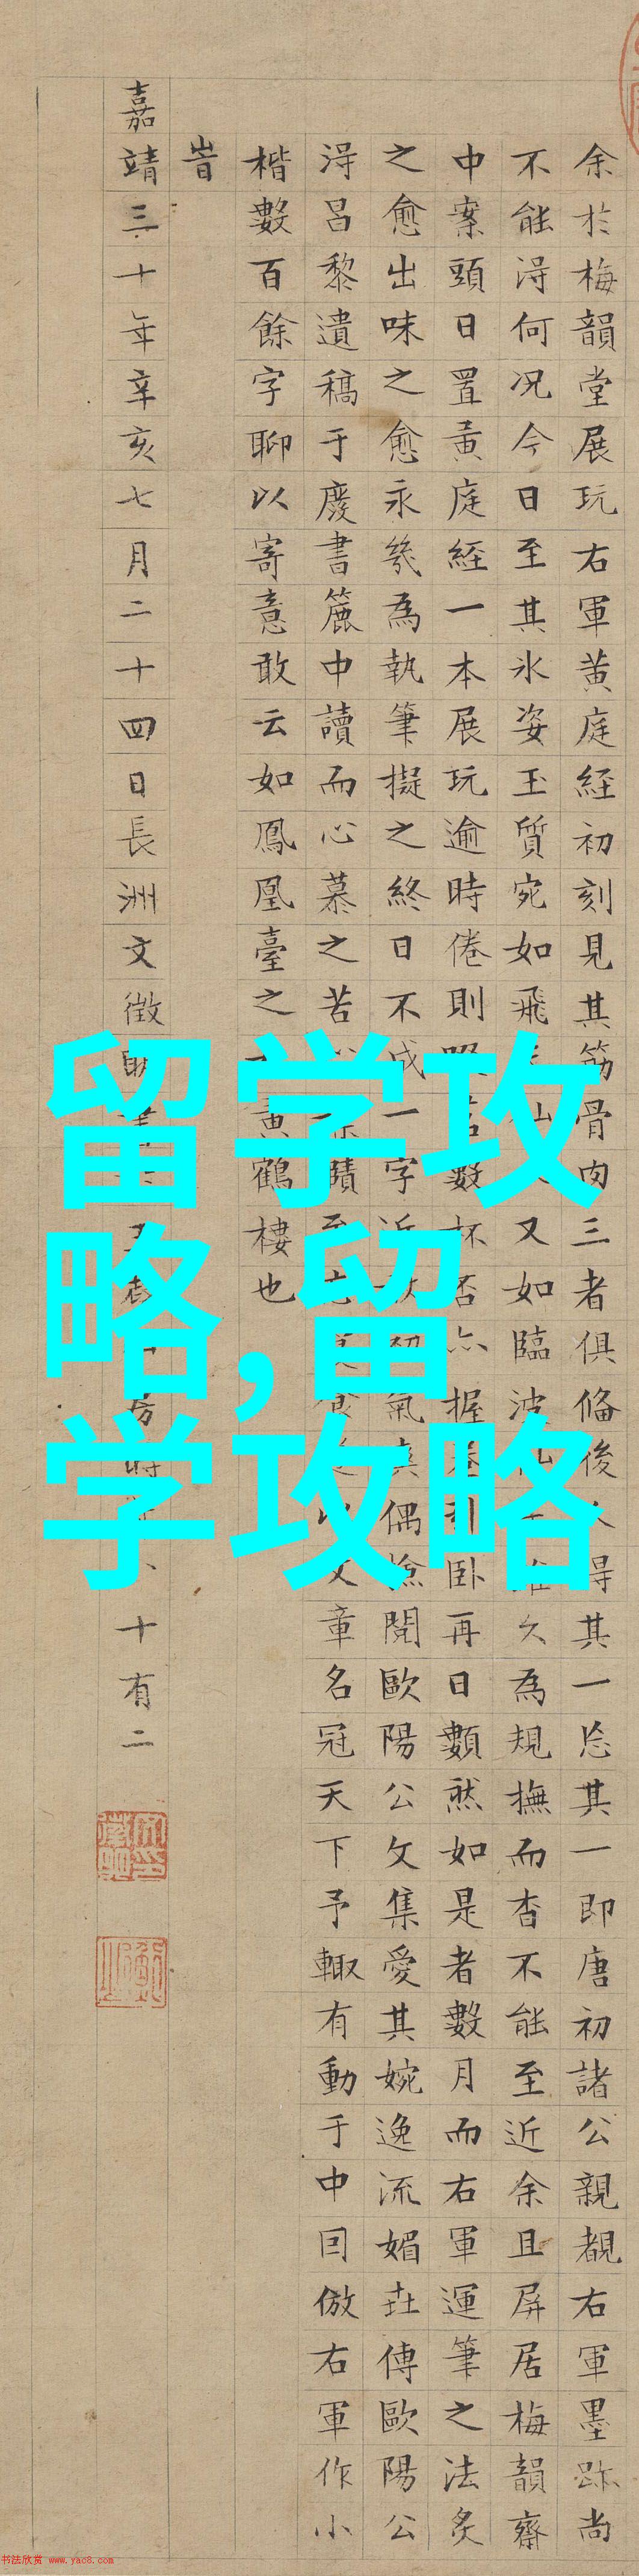 余於梅韻堂展玩右軍黄庭經初刻見其筋骨肉三者俱俻後人得其一忘其一即唐初諸公親覩右軍墨跡尚
不能淂何况今日至其氷姿玉質宛如飛 又如臨波 久為規撫而杳不能至近余且屏居梅韻齋
中案頭日置黄庭經一本展玩逾時倦則 數杯否亦握 卧再日數然如是者數月而右軍運筆之法炙
之愈出味之愈永幾為執筆擬之終日不成一字近 氣 偶撿閱歐陽公文集愛其婉逸流媚盐傳歐陽公
淂呂黎遺稿于廢書簏中讀而心慕之苦 賾至 以文章名冠天下予輙有動于中囙倣右軍作小
楷數百餘字聊以寄意敢云如鳳凰臺之 黄鶴樓也
旹
嘉靖三十年辛亥七月二十四日長洲文徵 時 十有二
留学攻
略,留
学攻略
书法欣赏 www.yac8.com